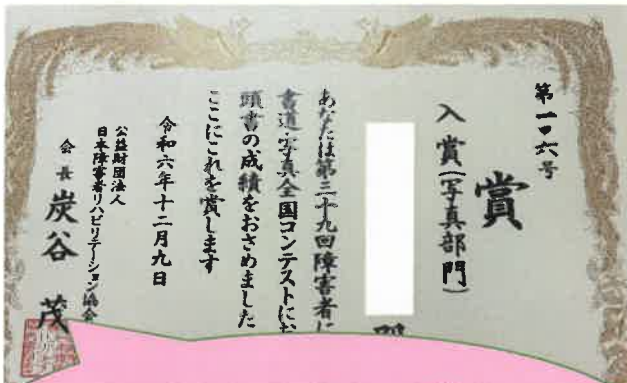 第一〇六号
賞
入賞(写真部門)
あなたは第三十九回障害者に
書道・写真全国コンテストにお
頭書の成績をおさめました
ここにこれを賞します
令和六年十二月九日
公益財団法人
日本障害者リハビリテーション協会
会長 炭谷 茂